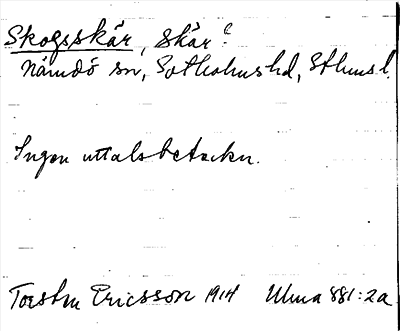 Skogsskär, skär?
Nämdö sn, Sotholms hd, Sthms l.
Ingen uttalsbeteckn.
Torsten Ericsson 1914 Ulma 881:2a